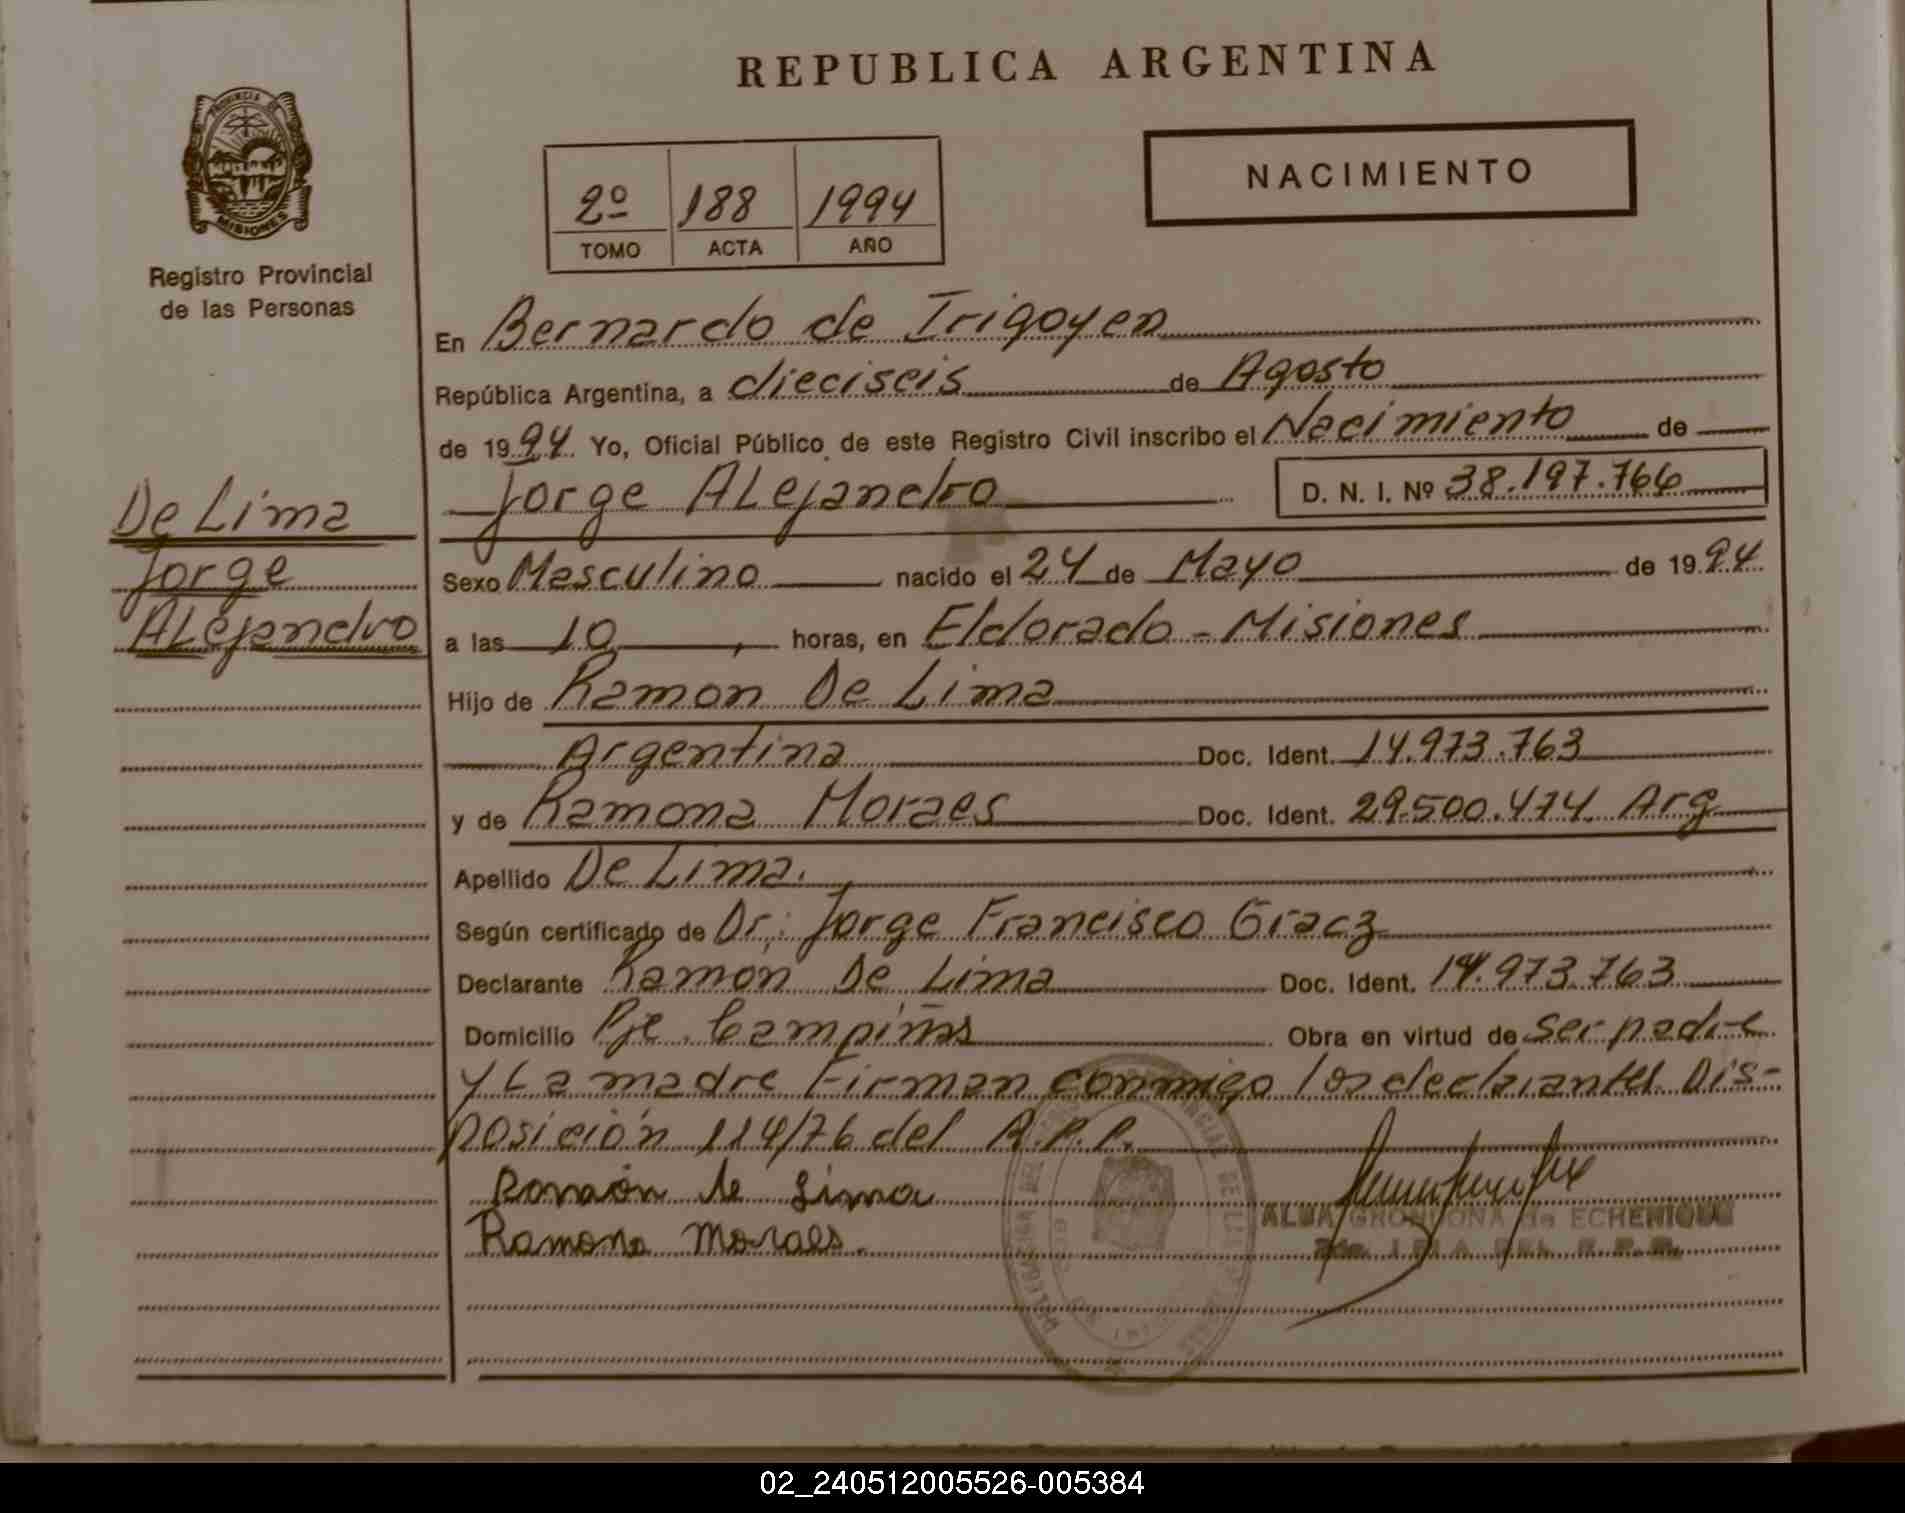 REPUBLICA ARGENTINA
NACIMIENTO
2º 188 1994
TOMO ACTA AÑO
PROVINCIA DE
MISIONES
Registro Provincial
de las Personas
En Bernardo de Irigoyen
República Argentina, a dieciseis de Agosto
de 1994 Yo, Oficial Público de este Registro Civil inscribo el Nacimiento de
Jorge ALejandro D. N. I. Nº 38.197.766
De Lima
Jorge
ALejandro
Sexo Masculino nacido el 24 de Mayo de 1994
a las 10 , horas, en Eldorado - Misiones
Hijo de Ramon De Lima
Argentina Doc. Ident. 14.973.763
y de Ramona Moraes Doc. Ident. 29.500.474. Arg
Apellido De Lima.
Según certificado de Dr: Jorge Francisco Gracz
Declarante Ramón De Lima Doc. Ident. 14.973.763
Domicilio Pje. Campiñas Obra en virtud de ser padre
y La madre Firman conmigo los declarantes Dis-
posición 114/76 del R.P.P.
Ramón de Lima
Ramona Moraes.
ALBA GRONDONA de ECHENIQUE
DEL R.P.P.
02_240512005526-005384